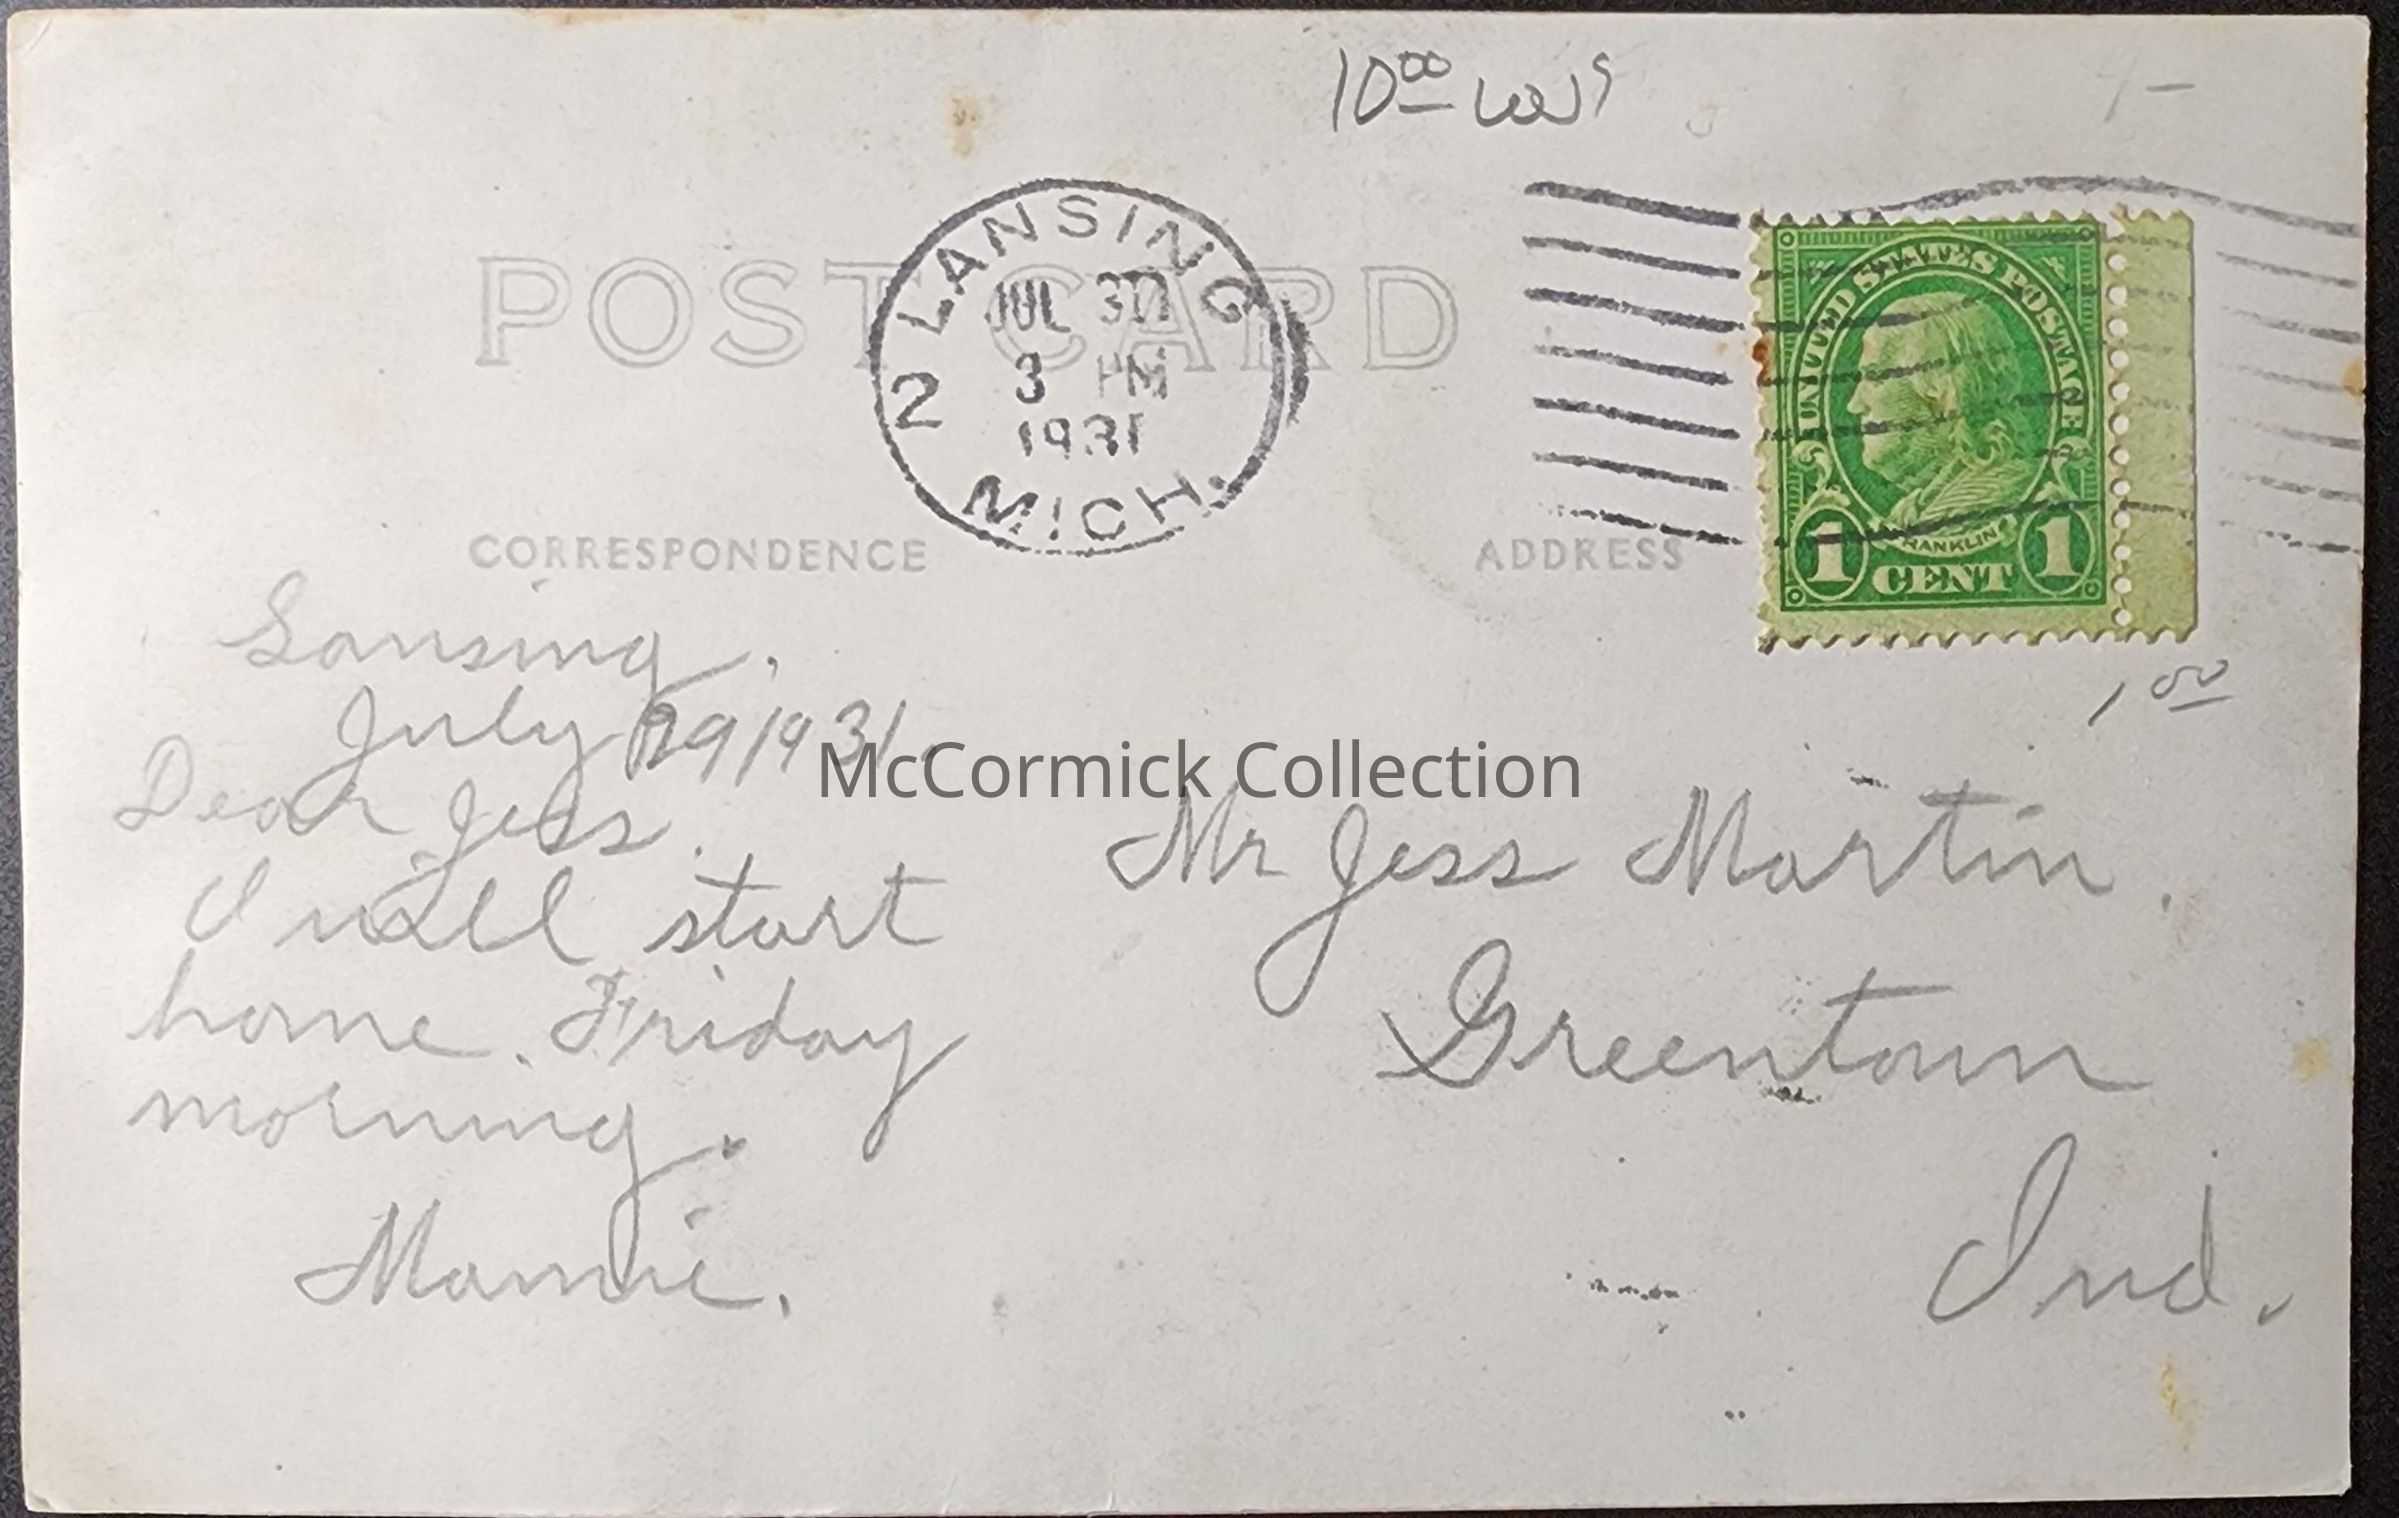 10⁰⁰
POST CARD
LANSING
JUL 30
3 PM
1931
2
MICH.
UNITED STATES POSTAGE
FRANKLIN
1 CENT 1
CORRESPONDENCE
ADDRESS
1⁰⁰
Lansing.
July 29 1931.
Dear Jess.
I will start
home. Friday
morning.
Mamie.
McCormick Collection
Mr Jess Martin.
Greentown
Ind.